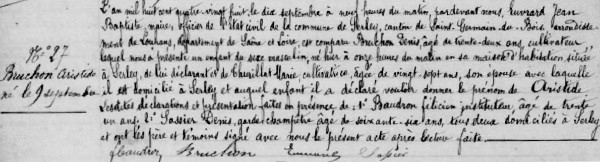 N° 27
Bruchon Aristide
né le 9 septembre
L'an mil huit cent quatre vingt huit, le dix septembre à neuf heures du matin, pardevant nous, Euvrard Jean
Baptiste, maire, officier de l'état civil de la commune de Serley, canton de Saint-Germain-du-Bois, arrondisse-
ment de Louhans, département de Saône et Loire, est comparu Bruchon Denis, âgé de trente-deux ans, cultivateur,
lequel nous a présenté un enfant de sexe masculin, né hier à onze heures du matin en sa maison d'habitation située
à Serley, de lui déclarant et de Chevillat Marie, cultivatrice, âgée de vingt-sept ans, son épouse avec laquelle
il est domicilié à Serley et auquel enfant il a déclaré vouloir donner le prénom de Aristide.
Lesdites déclarations et présentation faites en présence de: 1° Baudron félicien instituteur, âgé de trente
un ans, 2° Sassier Denis, garde-champêtre âgé de soixante-six ans, tous deux domiciliés à Serley
et ont les père et témoins signé avec nous le présent acte après lecture faite.
fBaudron Bruchon Euvrard Sassier